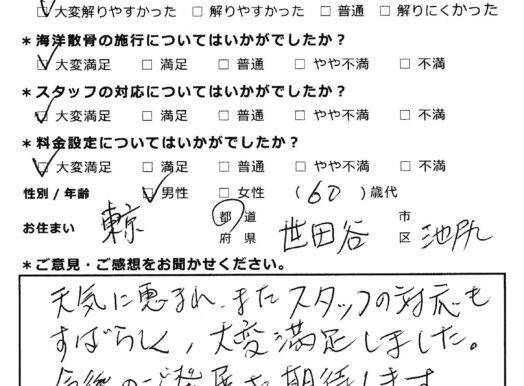 ☑大変解りやすかった □ 解りやすかった □ 普通 □ 解りにくかった
＊海洋散骨の施行についてはいかがでしたか？
☑ 大変満足 □ 満足 □ 普通 □ やや不満 □ 不満
＊スタッフの対応についてはいかがでしたか？
☑ 大変満足 □ 満足 □ 普通 □ やや不満 □ 不満
＊料金設定についてはいかがでしたか？
☑ 大変満足 □ 満足 □ 普通 □ やや不満 □ 不満
性別 / 年齢 ☑男性 □ 女性 ( 60 ) 歳代
お住まい 東京 都 道 府 県 世田谷 市 区
＊ご意見・ご感想をお聞かせください。
天気に恵まれ、またスタッフの対応も
すばらしく、大変満足しました。
今後のご発展を期待します